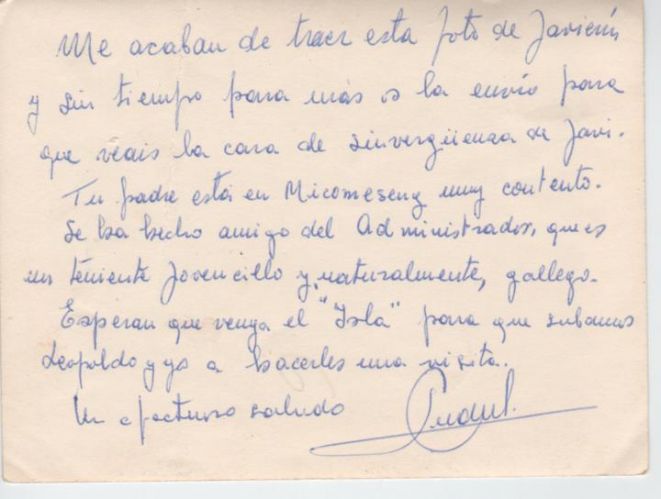 Me acaban de traer esta foto de Javierín
y sin tiempo para más os la envío para
que veais la cara de sinvergüenza de Javi.
Tu padre está en Micomeseng muy contento.
Se ha hecho amigo del Administrador, que es
un teniente jovencillo y, naturalmente, gallego.
Esperan que venga el "Isla" para que subamos
Leopoldo y yo a hacerles una visita.
Un afectuoso saludo